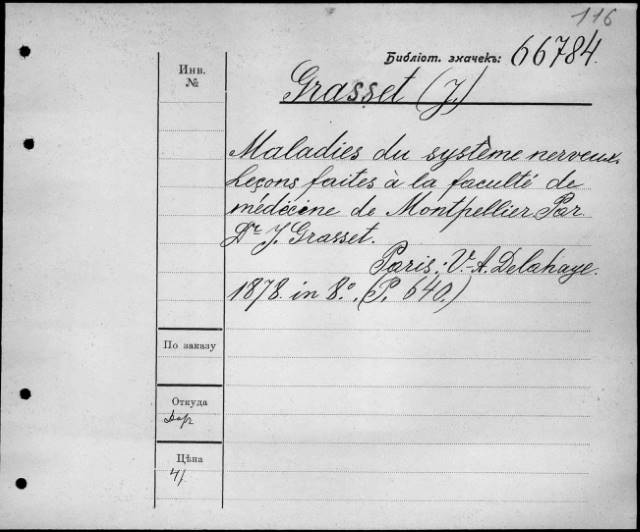 116
Библіот. значекъ: 66784.
Инв.
№
Grasset (J.)
Maladies du système nerveux.
Leçons faites à la faculté de
médécine de Montpellier. Par
Dr J. Grasset.
Paris. V.-A. Delahaye.
1878. in 8.º. (P. 640.)
По заказу
Откуда
Дар
Цѣна